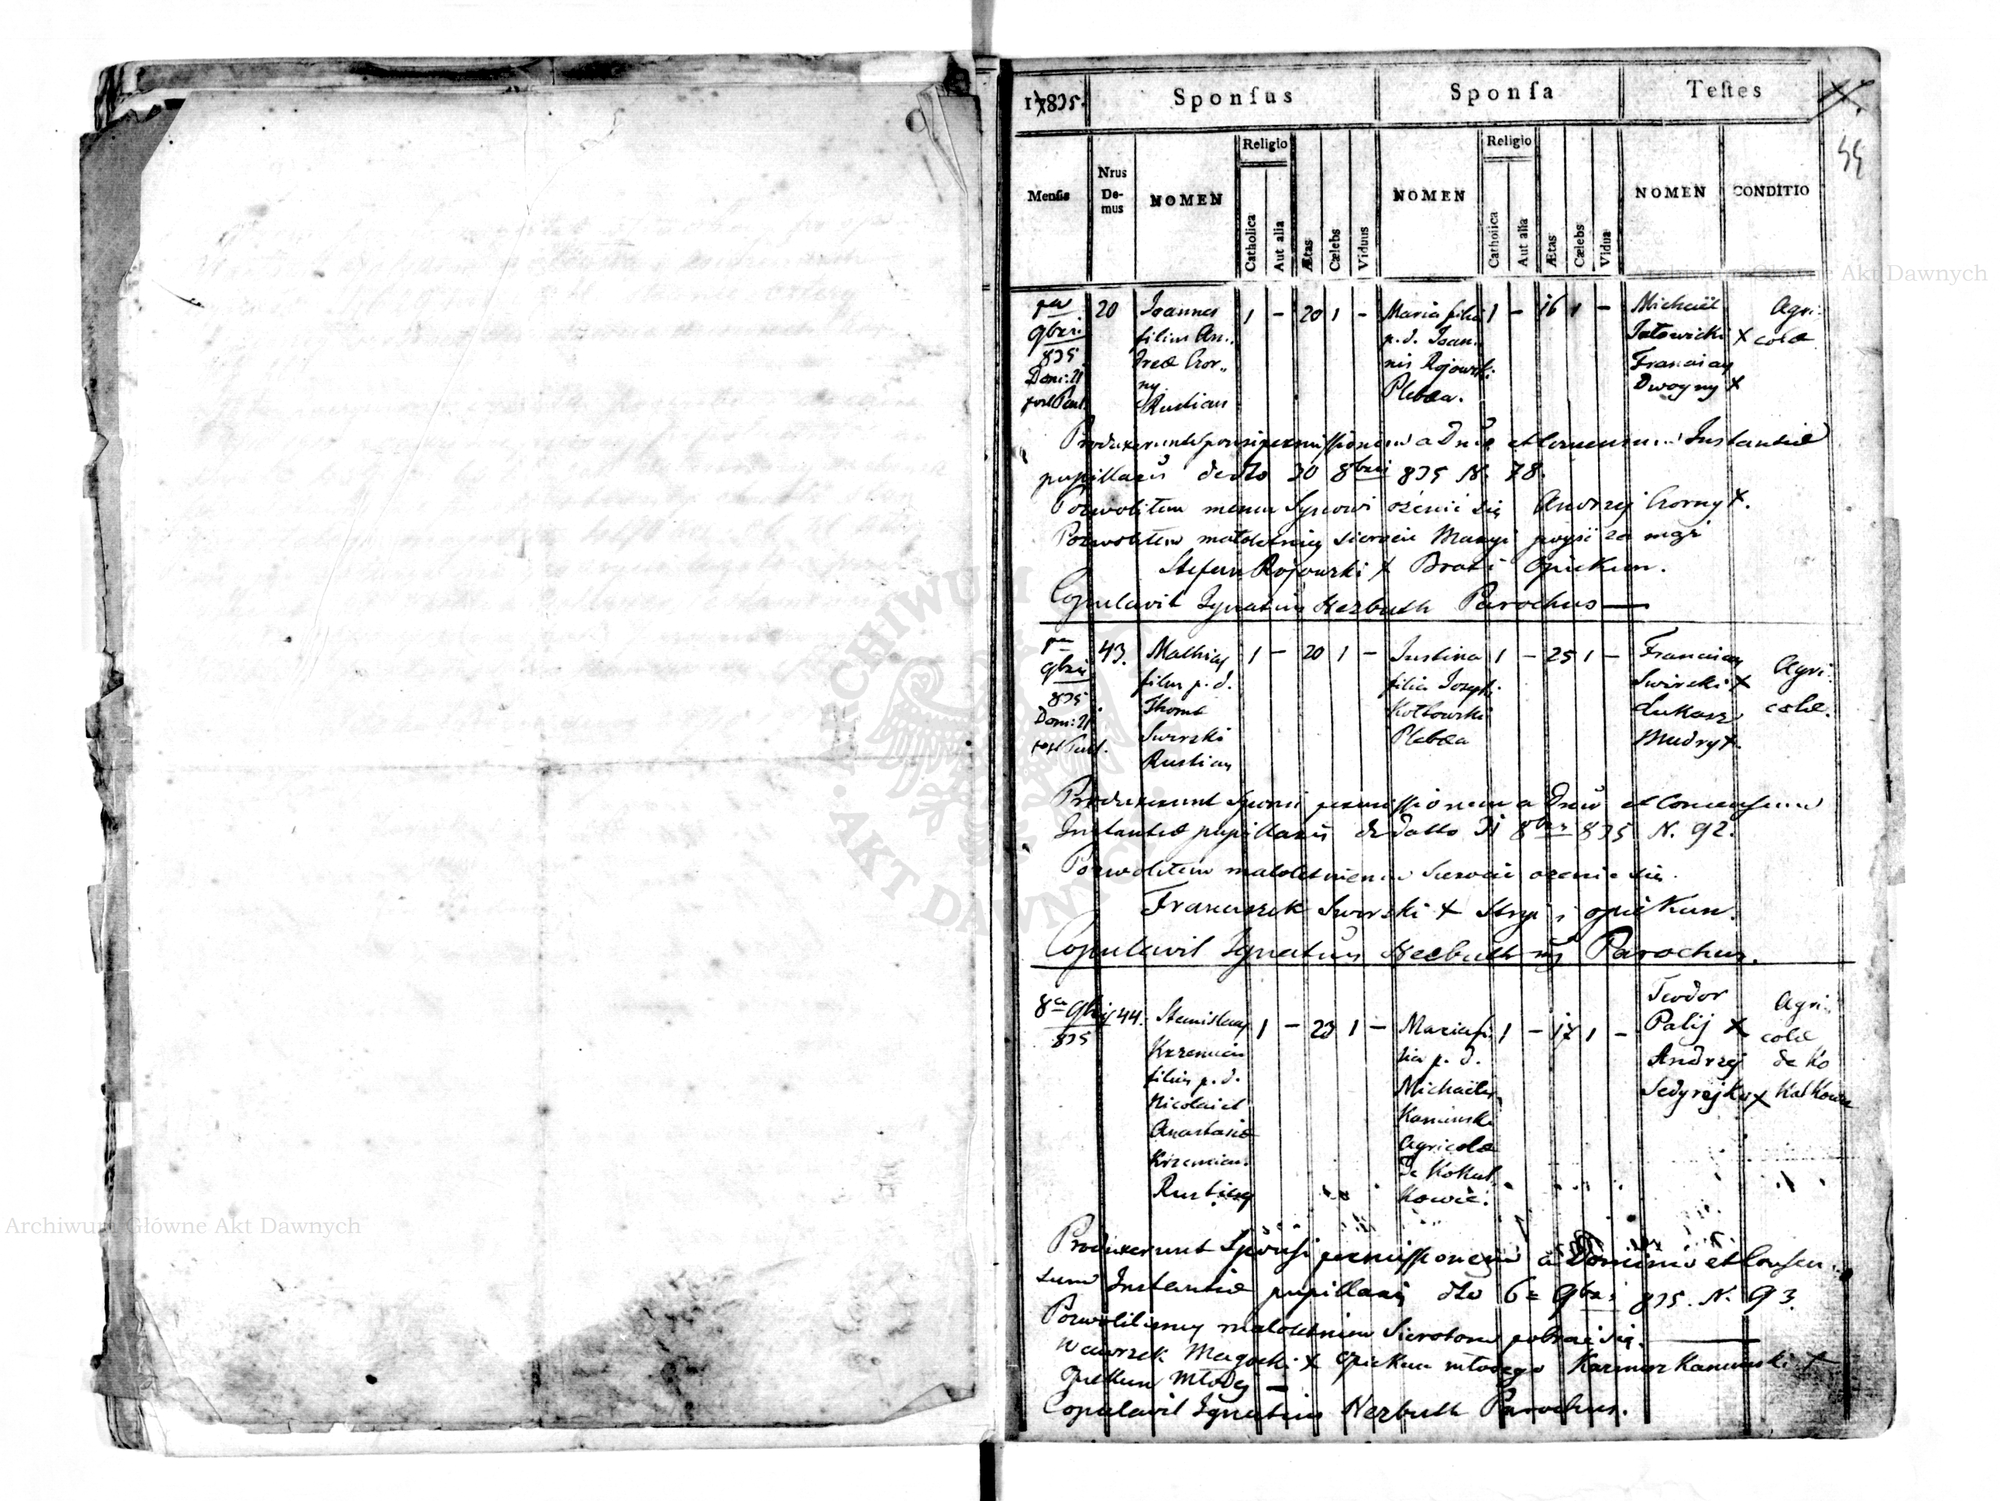 17835.
Sponsus
Sponsa
Testes
Mensis
Nrus Demus
NOMEN
Religio
Catholica
Aut alia
Ætas
Cælebs
Viduus
NOMEN
Religio
Catholica
Aut alia
Ætas
Cælebs
Vidua
NOMEN
CONDITIO
9bri
835
Dom: 21
post Pent.
20
Joannes
filius An-
dreæ Czor-
ny
Rustian
1 - 20 1 -
Maria filia
p. d. Joan-
nis Rojowski
Plebea.
1 - 16 1 -
Michael
Jatowicki x
Francian
Dwoyny x
Agri-
colæ
Produxerunt Sponsi permissionem a Dnio et Consensum Instantiæ
pupillaris de dto 30 8bri 835 N. 78.
Pozwoliłem memu Synowi ożenić się Andrzej Czorny x.
Pozwoliłem małoletniej sierocie Maryi pojść za mąż
Stefan Rojowski x Brat i Opiekun.
Copulavit Ignatius Herbuth Parochus
9bris
835
Dom: 21
post Pent.
43.
Mathias
filius p. d.
Thomæ
Swirski
Rustian
1 - 20 1 -
Justina
filia Joseph
Kotłowski
Plebea
1 - 25 1 -
Francian
Swirski x
Łukasz
Mudry x.
Agri-
colæ.
Produxerunt Sponsi permissionem a Dnio et Consensum
Instantiæ pupillaris de datto 31 8bris 835 N. 92.
Pozwoliłem małoletniemu Sierocie ożenić się
Franciszek Swirski x Stryj i opiekun.
Copulavit Ignatius Herbuth Parochus.
8a 9bris
835
44.
Stanislaus
Krzemien
filius p. d.
Nicolai et
Anastasiæ
Krzemien
Rusticus
1 - 23 1 -
Maria fi-
lia p. d.
Michaelis
Kaminski
Agricolæ
de Kokut-
kowie.
1 - 17 1 -
Teodor
Palij x
Andrzej
x
Agri-
colæ
de Ko
Produxerunt Sponsi permissionem a Dominio et Consen-
sum Instantiæ pupillaris dto 6a 9bris 835. N. 93.
Pozwolilismy małoletniem Sierotom pobrać się.
Wawrzek Magocki x Opiekun młodego Kazimierz Kaminski x
Opiekun Młodej
Copulavit Ignatius Herbuth Parochus.
Archiwum Główne Akt Dawnych
Archiwum Główne Akt Dawnych
ARCHIWUM
AKT DAWNYCH